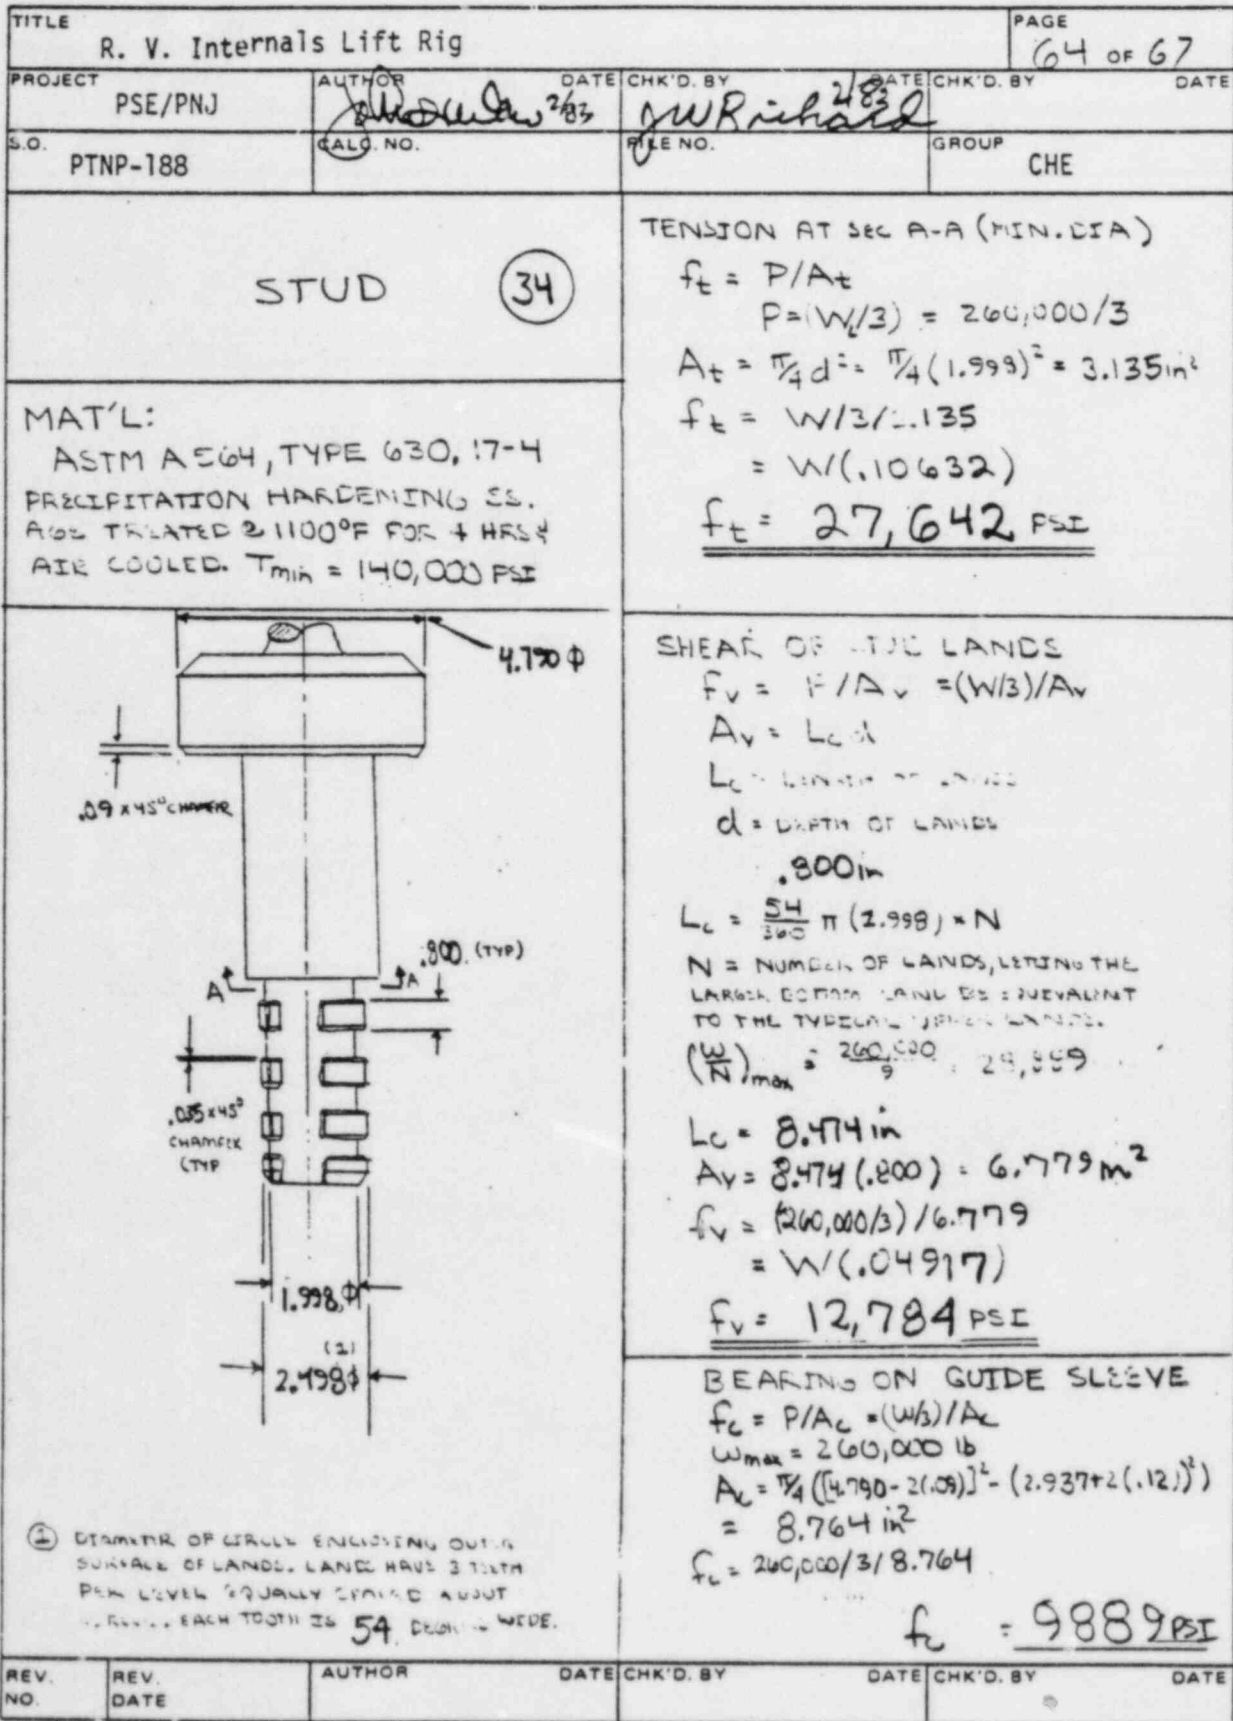 TITLE
R. V. Internals Lift Rig
PAGE
64 OF 67
PROJECT
PSE/PNJ
AUTHOR DATE
2/83
CHK'D. BY DATE
JWRichard 2/83
CHK'D. BY DATE
S.O.
PTNP-188
CALC. NO.
FILE NO.
GROUP
CHE
STUD 34
MAT'L:
ASTM A564, TYPE 630, 17-4
PRECIPITATION HARDENING SS.
AGE TREATED @ 1100°F FOR 4 HRS &
AIR COOLED. Tmin = 140,000 PSI
4.790 Φ
.09 x 45° CHAMFER
.800 (TYP)
A A
.035 x 45°
CHAMFER
(TYP
1.998 Φ
(1)
2.498 Φ
① DIAMETER OF CIRCLE ENCLOSING OUTER
SURFACE OF LANDS. LANDS HAVE 3 TEETH
PER LEVEL EQUALLY SPACED ABOUT
EACH TOOTH IS 54 WIDE.
TENSION AT SEC A-A (MIN. DIA)
ft = P/At
P=(W/3) = 260,000/3
At = π/4 d² = π/4 (1.998)² = 3.135 in²
ft = W/3/3.135
= W(.10632)
ft = 27,642 PSI
SHEAR OF LANDS
Fv = P/Av = (W/3)/Av
Av = Lc d
Lc = LENGTH OF LANDS
d = DEPTH OF LANDS
.800in
Lc = 54/360 π (1.998) × N
N = NUMBER OF LANDS, LETTING THE
LARGER BOTTOM LAND BE EQUIVALENT
TO THE TYPICAL UPPER LANDS.
(W/N)max = 260,000/9 = 28,889
Lc = 8.474 in
Av = 8.474 (.800) = 6.779 in²
fv = (260,000/3)/6.779
= W(.04917)
fv = 12,784 PSI
BEARING ON GUIDE SLEEVE
fc = P/Ac = (W/3)/Ac
Wmax = 260,000 lb
Ac = π/4 ([4.790 - 2(.09)]² - (2.937+2(.12))²)
= 8.764 in²
fc = 260,000/3/8.764
fc = 9889 PSI
REV. NO.
REV. DATE
AUTHOR DATE
CHK'D. BY DATE
CHK'D. BY DATE